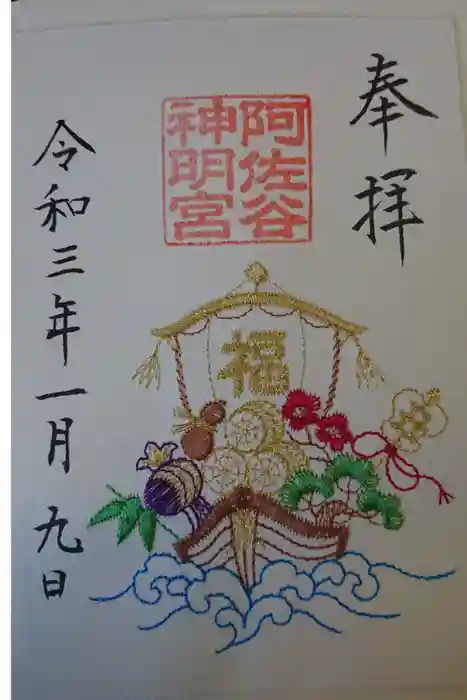 奉拝
阿佐谷
神明宮
福
令和三年一月九日